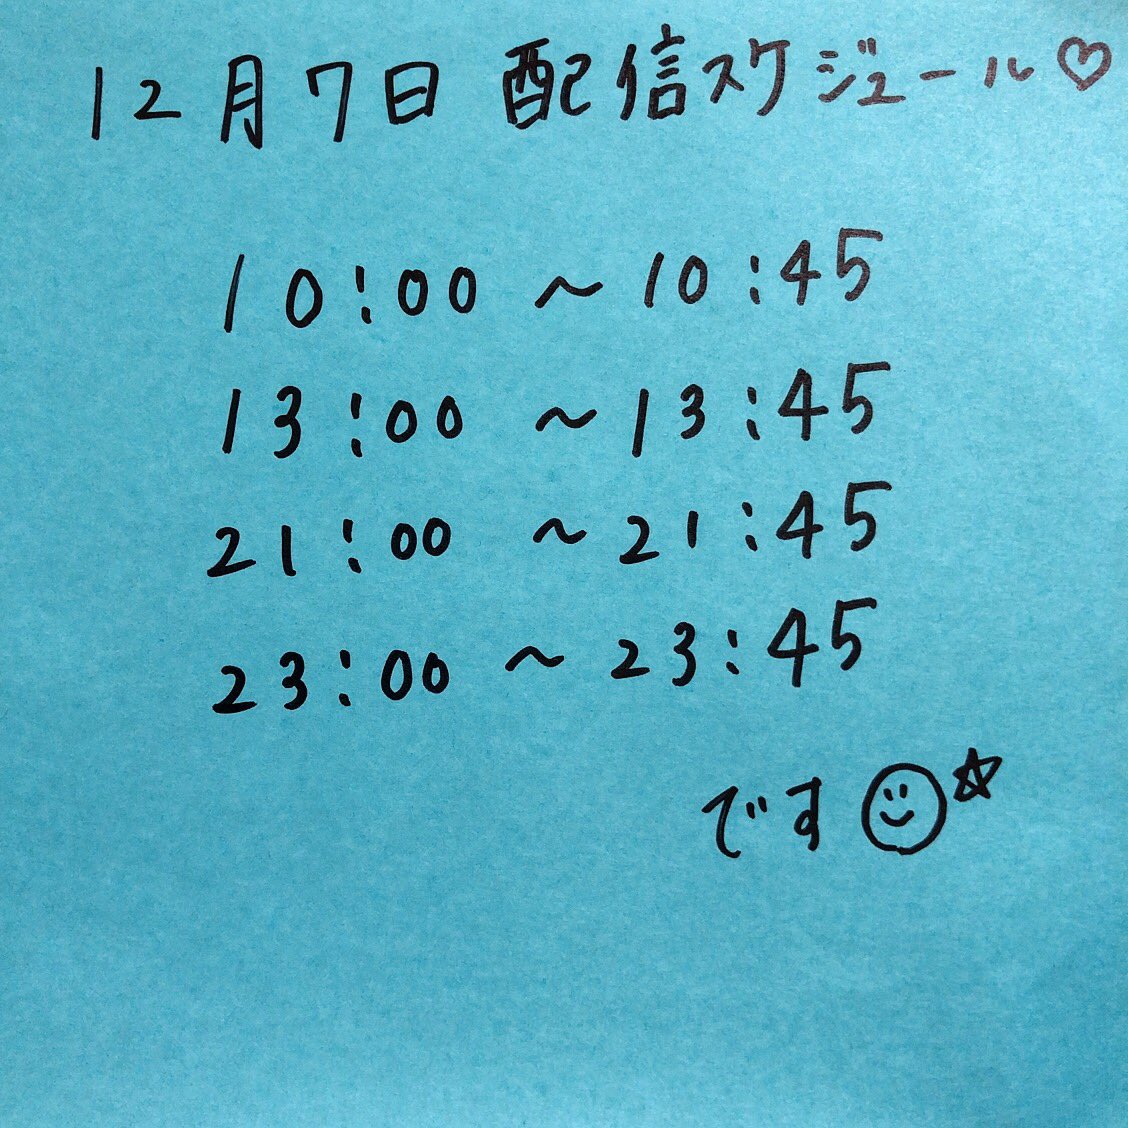 12月7日 配信スケジュール♡
10:00 〜 10:45
13:00 〜 13:45
21:00 〜 21:45
23:00 〜 23:45
です☺☆